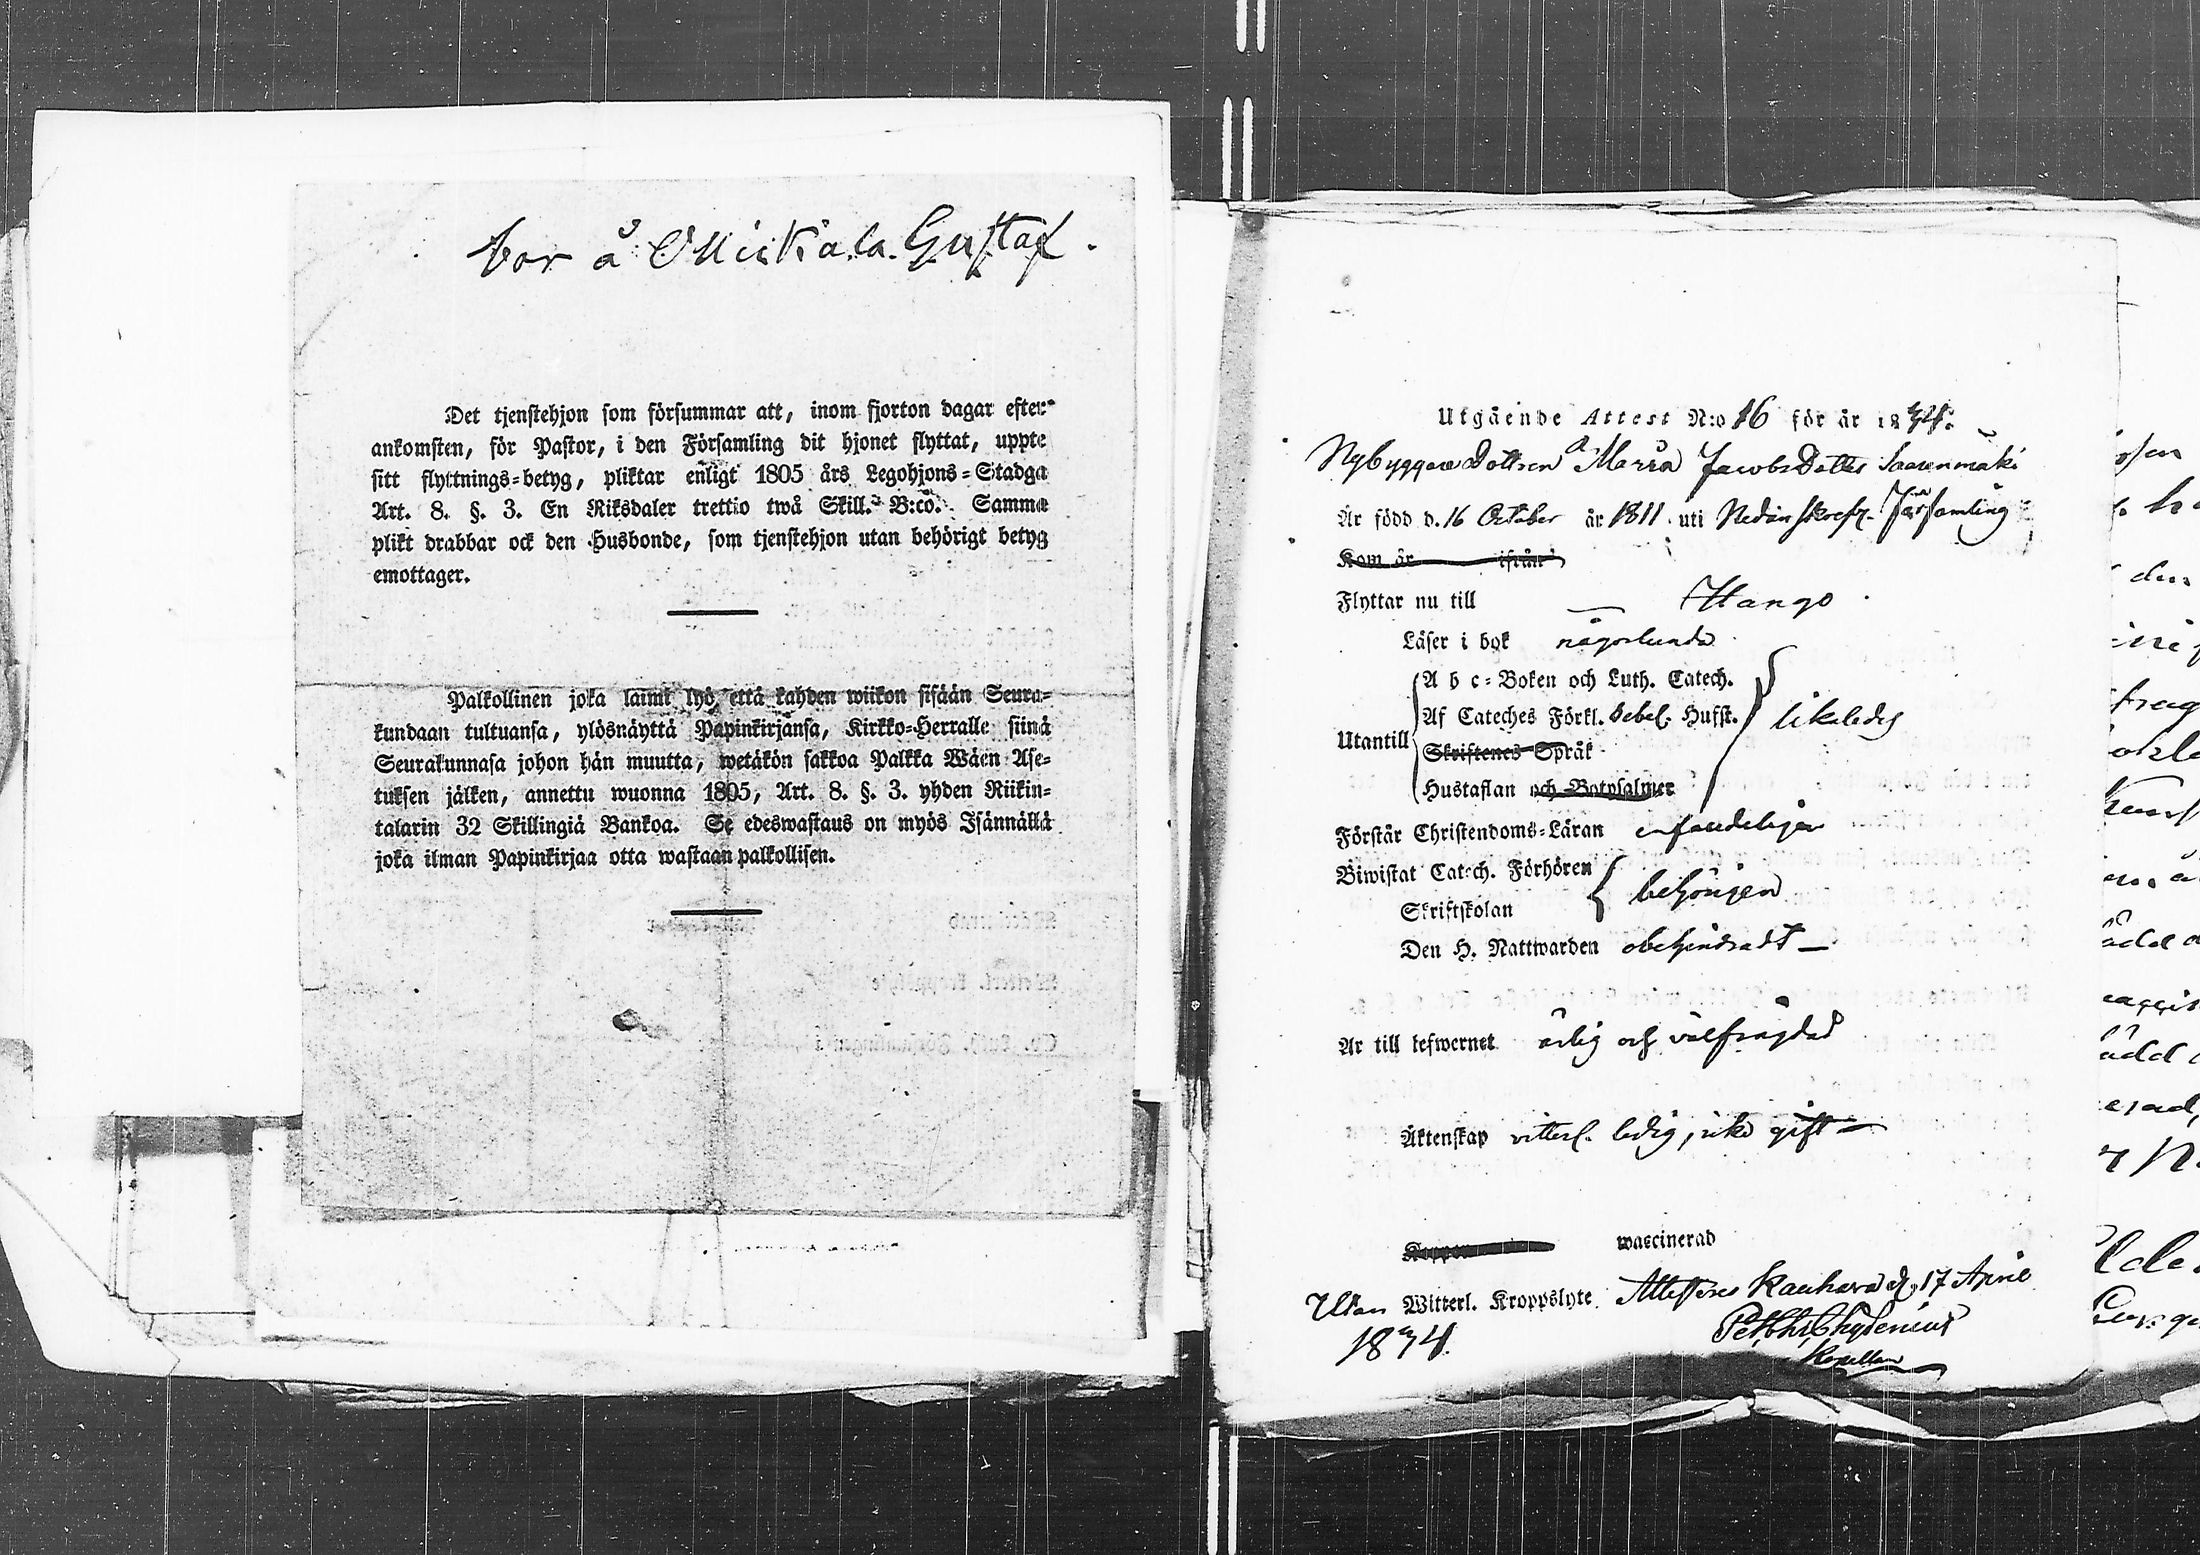 bor å Miekala Gustaf.
Det tjenstehjon som försummar att, inom fjorton dagar efter
ankomsten, för Pastor, i den Församling dit hjonet flyttat, uppte
sitt flyttnings-betyg, pliktar enligt 1805 års Legohjons-Stadga
Art. 8. §. 3. En Riksdaler trettio twå Skill. B:co. Samma
plikt drabbar ock den Husbonde, som tjenstehjon utan behörigt betyg
emottager.
Palkollinen joka laimi lyö, että kahden wiikon sisään Seura-
kundaan tultuansa, ylösnäyttä Papinkirjansa, Kirkko-Herralle siinä
Seurakunnasa johon hän muutta, wetäkön sakkoa Palkka Wäen Ase-
tuksen jälken, annettu wuonna 1805, Art. 8. §. 3. yhden Riikin-
talarin 32 Skillingiä Bankoa. Se edeswastaus on myös Isännällä
joka ilman Papinkirjaa otta wastaan palkollisen.
Utgående Attest N:o 16 för år 1834.
Nybyggare Dottren Maria Jacobs Dotter Saarenmäki
Är född d. 16 October år 1811 uti Nedanskrefn. Församling
Kom år ifrån
Flyttar nu till Hango
Läser i bok någorlunda
A b c-Boken och Luth. Catech.
Af Cateches Förkl. Sebel. Hufst. likeledes
Utantill
Skriftenes Språk
Hustaflan och Botpsalmer
Förstår Christendoms-Läran enfaudeligen
Biwistat Catech. Förhören
behörigen
Skriftskolan
Den H. Nattwarden obehindradt
Är till lefwernet ärlig och välfrägdad
Äktenskap vitterl. ledig, icke gift
waccinerad
Utan Witterl. Kroppslyte. Attesteras Kauhava d. 17 April
1834.
Pet. Chydenius
Kapellan